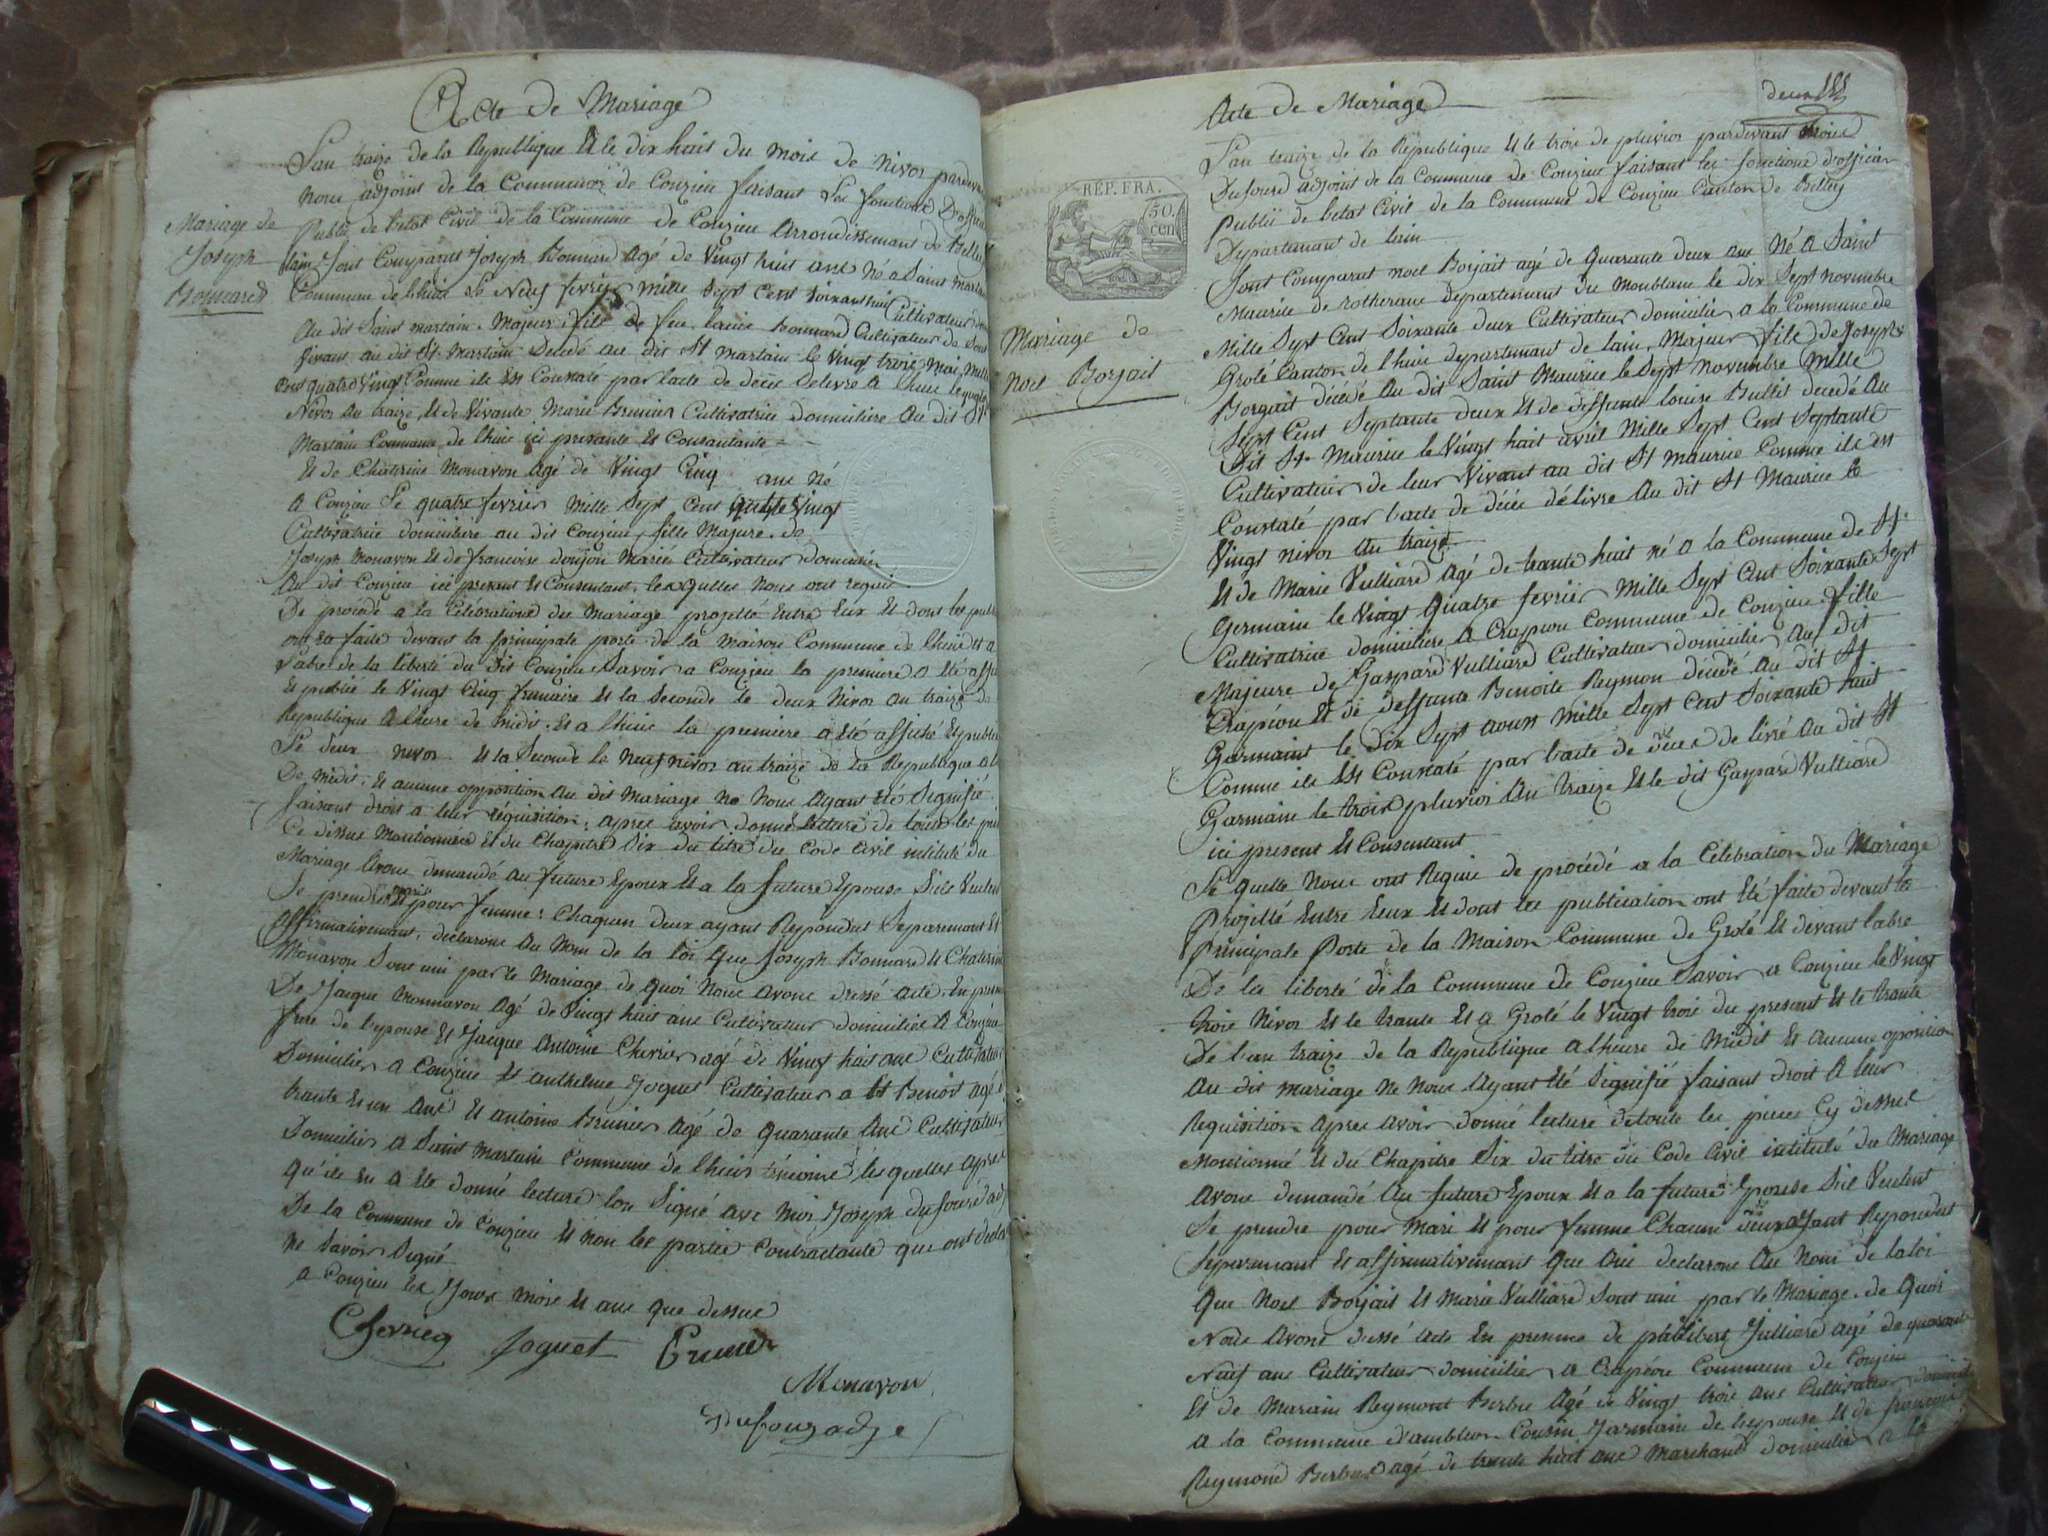 Acte de Mariage
L'an traize de la Republique & le dix huit du mois de Nivos pardevant
nous adjoint de la Commune de Conzieu faisant Les fonctions D'officier
Public de letat Civil de la Commune de Conzieu Arrondissement de Belley
lain, Sont Comparus Joseph Bonnard agé de Vingt huit ans né a Saint Martain
Commune de lhuis Le Neuf fevrier mille Sept Cent Soixante
Cultivateur
Au dit Saint martain. Majeur fils de feu Bonnard Cultivateur de Son
Vivant au dit St Martain Decedé au dit St Martain le Vingt trois Mai Mille
Cent quatre Vingt Comme ils Est Constaté par lacte de décès delivré a lhuis le
Nivos an traize & de Vivante Marie Brunier Cultivatrice domiciliere au dit St
Martain Commune de lhuis ici presante & Consantante
Et de Chaterine Monavon agé de Vingt Cinq ans Né
A Conzieu Le quatre fevrier Mille Sept Cent quatre Vingt
Cultivatrice domiciliere au dit Conzieu, fille Majeure de
Joseph Monavon & de francoise doujon Mariés Cultivateur domicilier
Au dit Conzieu ici present & Consentant, lesquelles nous ont requis
De procédé a la Célébrationd du Mariage projetté Entre Eux & dont les publi
ont été faite devant la principale porte de la Maison Commune de lhuis & a
l'abre de la liberté du dit Conzieu Savoir a Conzieu la premiere a été affi
& publié le Vingt Cinq frimaire & la Seconde le deux Nivos an traize de
Republique A lheure de Midit. Et a lhuis la première a été affiché & publié
Le deux nivos & la Seconde le neuf nivos an traize de la Republique a l
De midit, & aucune opposition Au dit Mariage Ne Nous Ayant Eté Signifié
faisant droit a leur réquisition; apres avoir donné Lecture de toute les pie
Ce dessus Mantionnées & du Chapitre Six du titre du Code Civil intitulé du
Mariage Avons demandé au future Epoux & a la future Epouse Sils Veulent
Se prendre pour mari & pour femme: Chaqun deux ayant Repondut Separement &
affirmativemant, declarons Au Nom de la loi que Joseph Bonnard & Chaterine
Monavon Sont uni par le Mariage de quoi Nous Avons dressé acte. En presen
De Jacque Monnavon Agé de Vingt huit ans Cultivateur domicilier A Conzieu
frere de lepouse & Jacque Antoine Chevrier agé de Vingt huit ans Cultivateur
Domicilier a Conzieu & anthelme Joquet Cultivateur a St Benoit agé de
trante & un Ans & antoine Brunier Agé de quarante Ans Cultivateur
Domicilier a Saint Martain Commune de lhuis témoins lesquelles apres
qu'ils en a été donné lecture lon Signé avec Moi Joseph dufour adj
De la Commune de Conzieu & non les partie Contractante que ont déclaré
Ne Savoir Signé
A Conzieu les Jours mois & ans que dessus
Chevrier Joquet Brunier
Monavon
Dufour adje
Mariage de
Joseph
Bonnard
deux
Acte de Mariage
L'an traize de la République & le trois de pluvios pardevant Nous
Dufour adjoint de la Commune de Conzieu faisant les fonctions d'officier
Public de letat Civil de la Commune de Conzieu Canton de Belley
Departemant de lain
Sont Comparut noel Borjait agé de quarante deux ans Né a Saint
Maurise de rotherans departemant du Montblanc le dix Sept Novembre
Mille Sept Cent Soixante deux Cultivateur domicilier a la Commune de
Grolé Canton de lhuis departemant de lain, Majeur fils de Joseph
Borgait décédé Au dit Saint Maurice le Sept Novembre Mille
Sept Cent Septante deux & de deffunte louise Bullit decedé Au
Dit St Maurice le Vingt huit avril Mille Sept Cent Septante
Cultivateur de leur Vivant au dit St Maurice Comme ils est
Constaté par lacte de décès délivre Au dit St Maurice le
Vingt nivos an traize
& de Marie Vulliard Agé de trante huit né a la Commune de St
Germain le Vingt quatre fevrier Mille Sept Cent Soixante Sept
Cultivatrice domiciliere a Crapeou Commune de Conzieu fille
Majeure de Gaspard Vulliard Cultivateur domicilier Au dit
Crapéou & de deffunte Benoite Reymon décédé Au dit St
Germaint le dix Sept aoust Mille Sept Cent Soixante huit
Comme ils Est Constaté par lacte de décès de livré Au dit St
Germain le trois pluvios An traize & le dit Gaspard Vulliard
ici present & Consentant
Le quelle Nous ont Requis de procédé a la Célébration du Mariage
Projetté Entre Eeux & dont les publication ont Eté faite devant la
Principale Porte de la Maison Commune de Grolé & devant labre
De la liberté de la Commune de Conzieu Savoir a Conzieu le Vingt
trois Nivos & le trante & a Grolé le Vingt trois du present & le trante
De lan traize de la Republique a lheure de Midit & aucune oposition
Au dit Mariage Ne Nous Ayant Eté Signifié faisant droit A leur
Requisition apres avoir donné lecture de toute les pieces Cy dessus
Montionné & du Chapitre Six du titre du Code Civil intitulé du Mariage
avons demandé Au future Epoux & a la future Epouse Sils Veulent
Se prendre pour Mari & pour femme Chacun deux ayant Repondut
Seperemant & affirmativemant que oui declarons Au Nom de la loi
Que Noel Borjait & Marie Vulliard Sont uni par le Mariage. de Quoi
Nous Avons dressé Acte En presence de philibert Julliard agé de quarante
Neuf ans Cultivateur domicilier a Crapéou Commune de Conzieu
& de Marain Reymont Berbre Agé de Vingt trois ans Cultivateur domicilier
a la Commune d'ambleon Cousin Jermain de lepouse & de francois
Reymond Berbre agé de trante huit ans Marchand domicilier a la
RÉP. FRA.
50.
cen
Mariage de
Noel Borjait